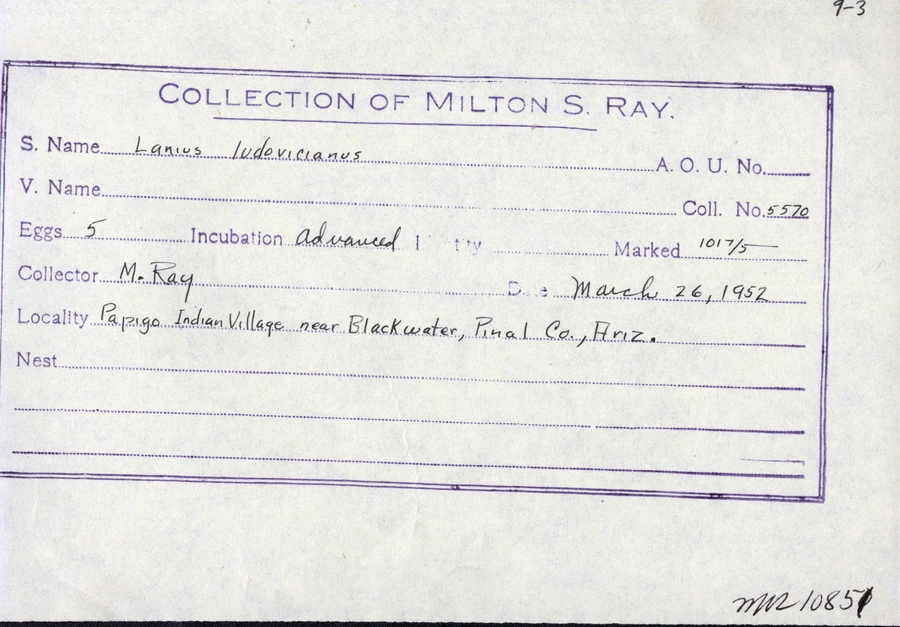 9-3
COLLECTION OF MILTON S. RAY.
S. Name Lanius ludovicianus A. O. U. No.
V. Name Coll. No. 5570
Eggs 5 Incubation advanced I tity Marked 1017/5
Collector M. Ray D e March 26, 1952
Locality Papigo Indian Village near Blackwater, Pinal Co., Ariz.
Nest
10851